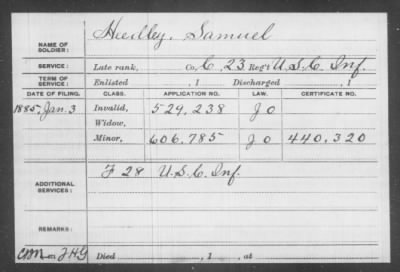 NAME OF SOLDIER: Hudley, Samuel
SERVICE: Late rank, Co. C, 23 Reg't U.S.C. Inf.
TERM OF SERVICE: Enlisted , 1 Discharged , 1
DATE OF FILING. CLASS. APPLICATION NO. LAW. CERTIFICATE NO.
1885, Jan. 3 Invalid, 529,238 J O
Widow,
Minor, 606,785 J O 440,320
ADDITIONAL SERVICES: F 28 U.S.C. Inf.
REMARKS:
Died , 1 , at